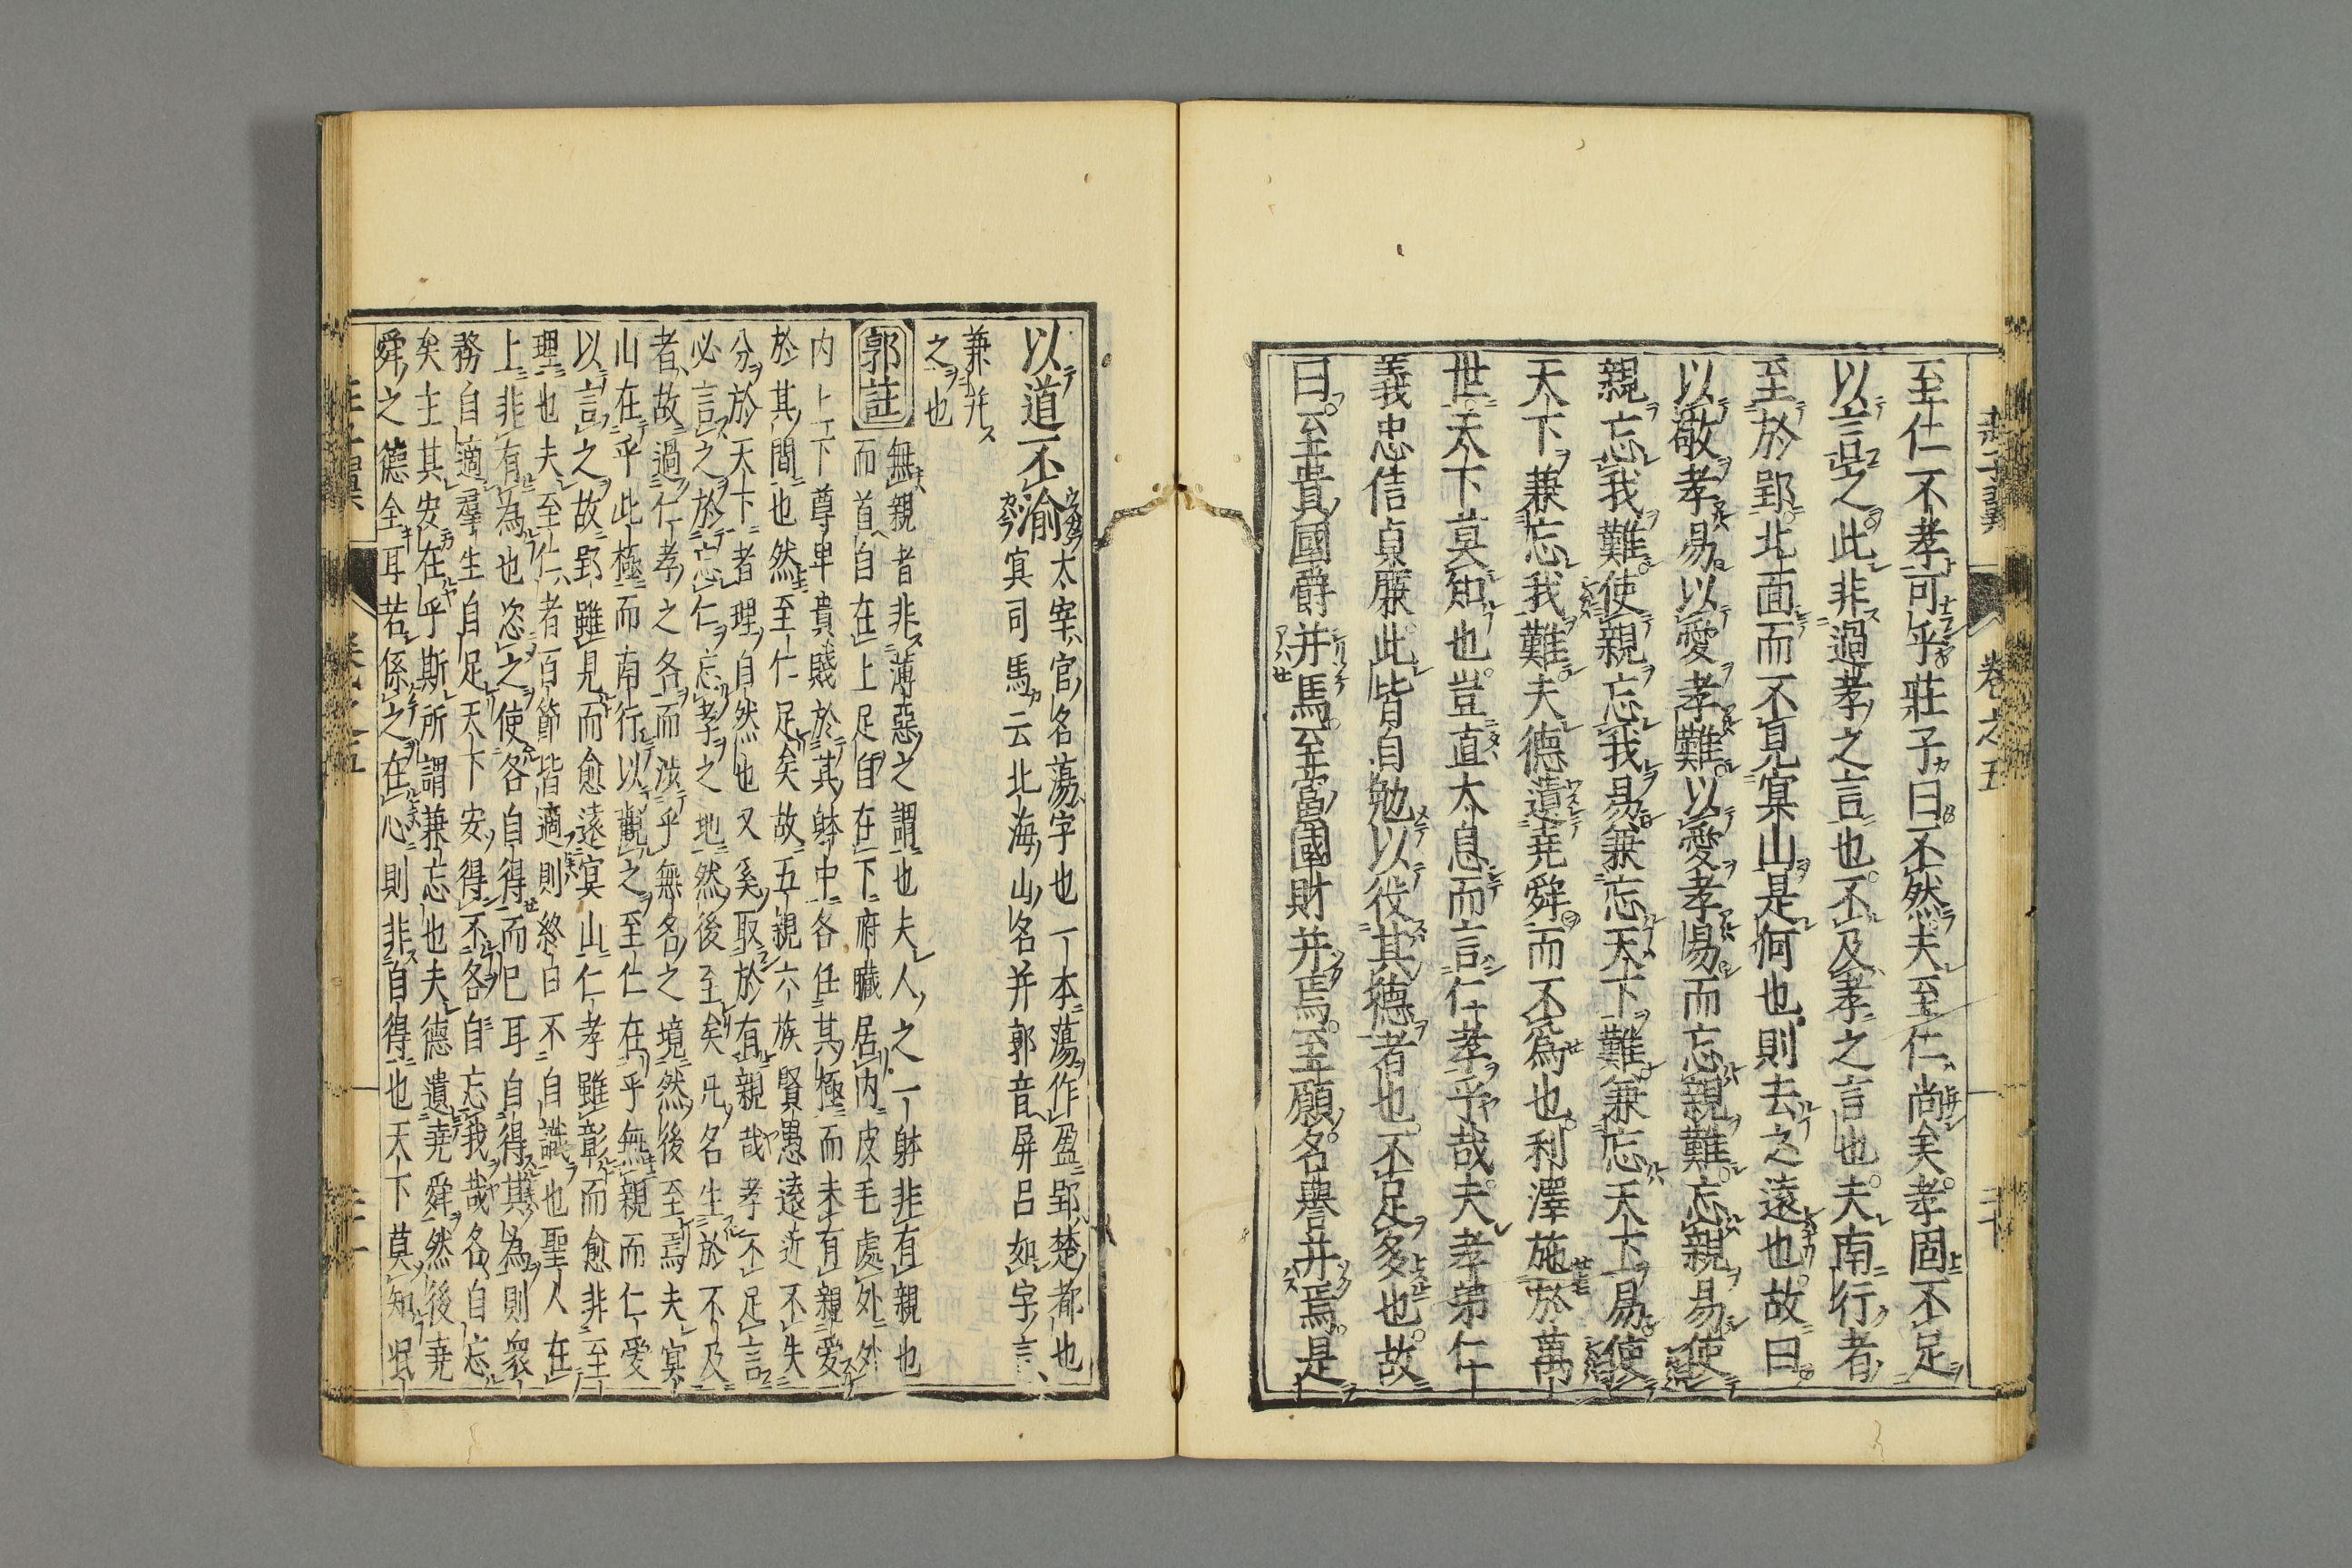 莊子翼 卷之五 二十
至仁不孝可乎莊子曰不然夫至仁尚矣孝固不足
以言之此非過孝之言也不及孝之言也夫南行者
至於郢北面而不見冥山是何也則去之遠也故曰
以敬孝易以愛孝難以愛孝易而忘親難忘親易使
親忘我難使親忘我易兼忘天下難兼忘天下易使
天下兼忘我難夫德遺堯舜而不為也利澤施於萬
世天下莫知也豈直太息而言仁孝乎哉夫孝弟仁
義忠信貞廉此皆自勉以役其德者也不足多也故
曰至貴國爵并焉至富國財并焉至願名譽并焉是
以道不渝
太宰官名蕩字也一本蕩作盈郢楚都也
冥司馬云北海山名并郭音屏呂如字言
兼并
之也
郭註
無親者非薄惡之謂也夫人之一體非有親也
而首自在上足自在下府臟居内皮毛處外外
内上下尊卑貴賤於其體中各任其極而未有親愛
於其間也然至仁足矣故五親六族賢愚遠近不失
分於天下者理自然也又奚取於有親哉孝不足言
必言之於忘仁忘孝之地然後至矣凡名生於不及
者故過仁孝之名而涉乎無名之境然後至焉夫冥
山在乎北極而南行以觀之至仁在乎無親而仁愛
以言之故郢雖見而愈遠冥山仁孝雖彰而愈非至
理也夫至仁者百節皆適則終日不自識也聖人在
上非有為也恣之使各自得而已耳自得其為則衆
務自適羣生自足天下安得不各自忘我哉各自忘
矣主其安在乎斯所謂兼忘也夫德遺堯舜然後堯
舜之德全耳若係之在心則非自得也天下莫知泯